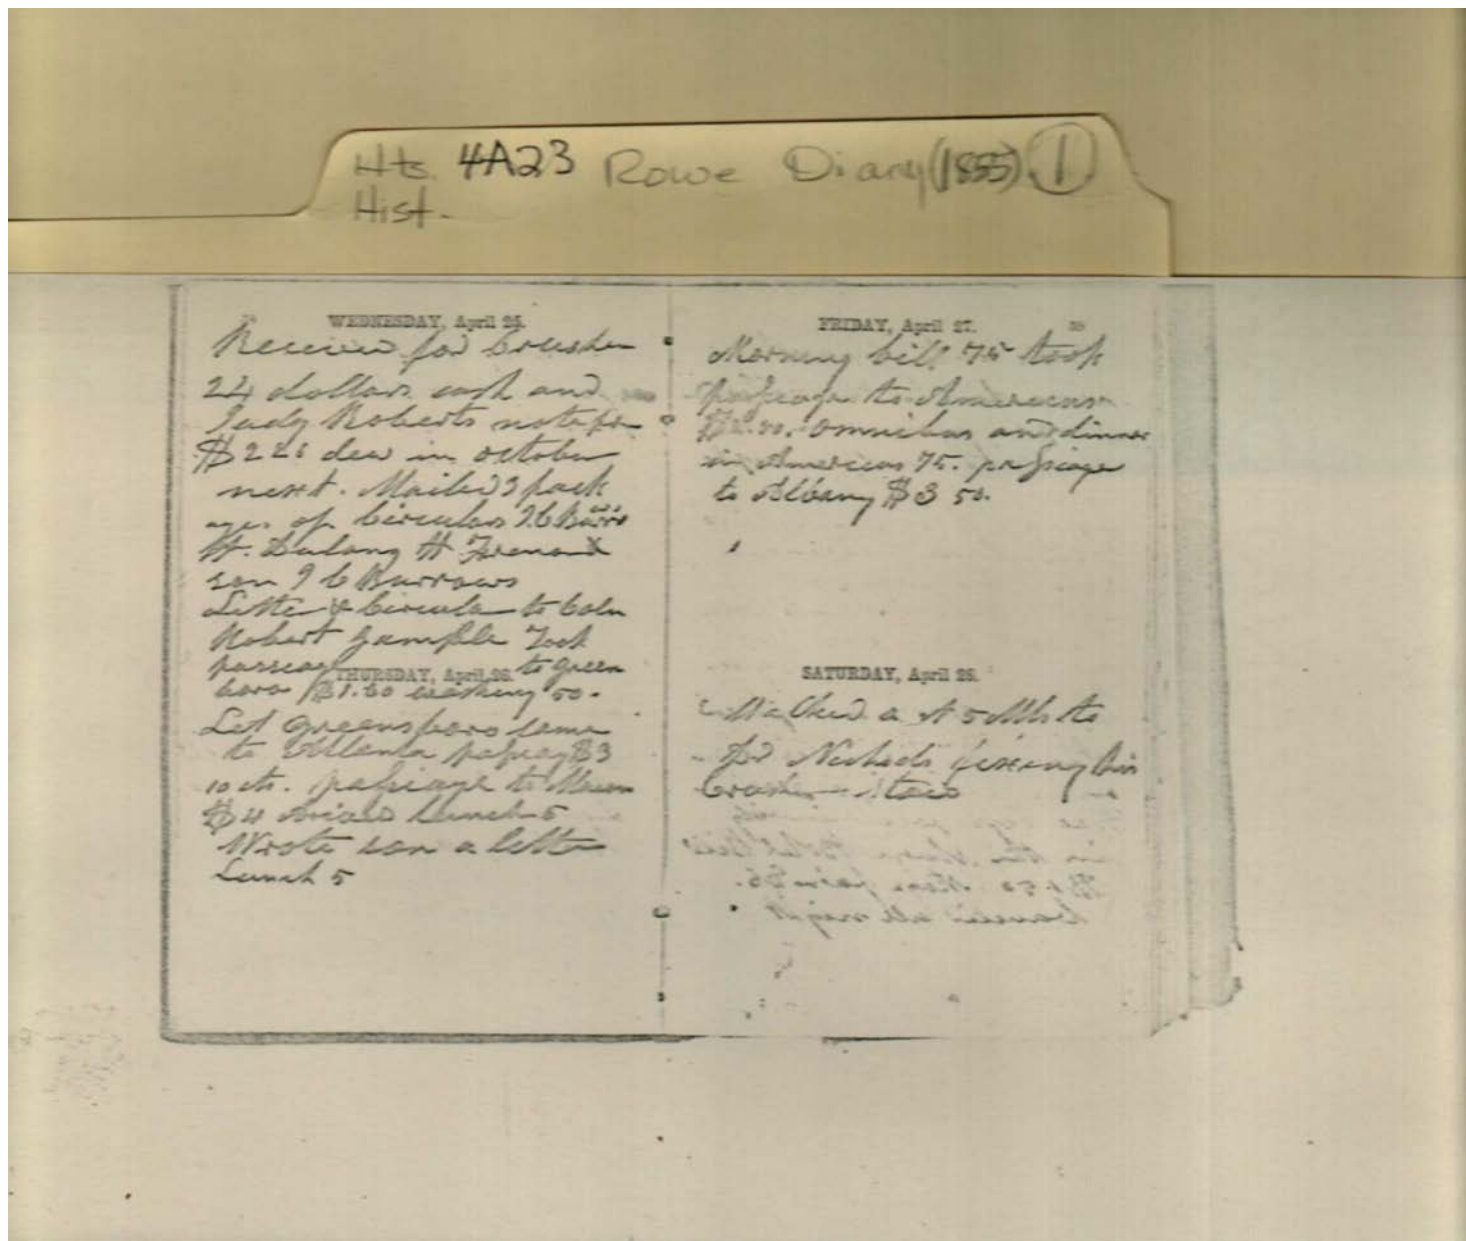 Hts. 4A23 Rowe Diary (1855) 1
Hist.
WEDNESDAY, April 25.
Received for Crusher
24 dollars cash and
Judg Roberts note for
$226 dew in october
next. Mailed 3 pack
ages of Circulars
H. Dulany H
son J C Burrows
Letter & Circular to Coln
Robert Gamble Took
passeag to green
THURSDAY, April 26.
boro $1.60 washing 50.
Let Greensboro came
to Atlanta pasag $3
10 cts. passage to Macon
$4 Lunch 5
Wrote son a letter
Lunch 5
FRIDAY, April 27.
Morning bill 75 took
passage to Americus
omnibus and dinner
in Americus 75. passage
to Albany $3 50.
SATURDAY, April 28.
Walked a t 5 Mls to
Dr Nichols fixing his
Crusher